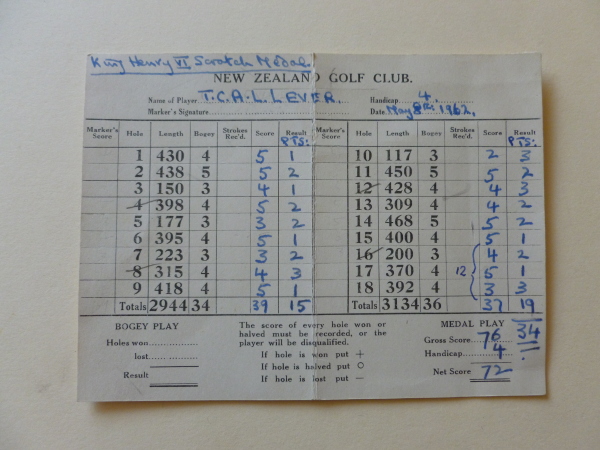 King Henry VI Scratch Medal
NEW ZEALAND GOLF CLUB.
Name of Player T.C.A.L. LEVER. Handicap 4.
Marker's Signature Date May 8th. 1962.
Marker's Score Hole Length Bogey Strokes Rec'd. Score Result PTS: Marker's Score Hole Length Bogey Strokes Rec'd. Score Result PTS:
1 430 4 5 1 10 117 3 2 3
2 438 5 5 2 11 450 5 5 2
3 150 3 4 1 12 428 4 4 3
4 398 4 5 2 13 309 4 4 2
5 177 3 3 2 14 468 5 5 2
6 395 4 5 1 15 400 4 5 1
7 223 3 3 2 16 200 3 4 2
8 315 4 4 3 17 370 4 12 5 1
9 418 4 5 1 18 392 4 3 3
Totals 2944 34 39 15 Totals 3134 36 37 19
BOGEY PLAY
Holes won
lost
Result
The score of every hole won or
halved must be recorded, or the
player will be disqualified.
If hole is won put +
If hole is halved put O
If hole is lost put —
MEDAL PLAY 34
Gross Score 76
Handicap 4
Net Score 72